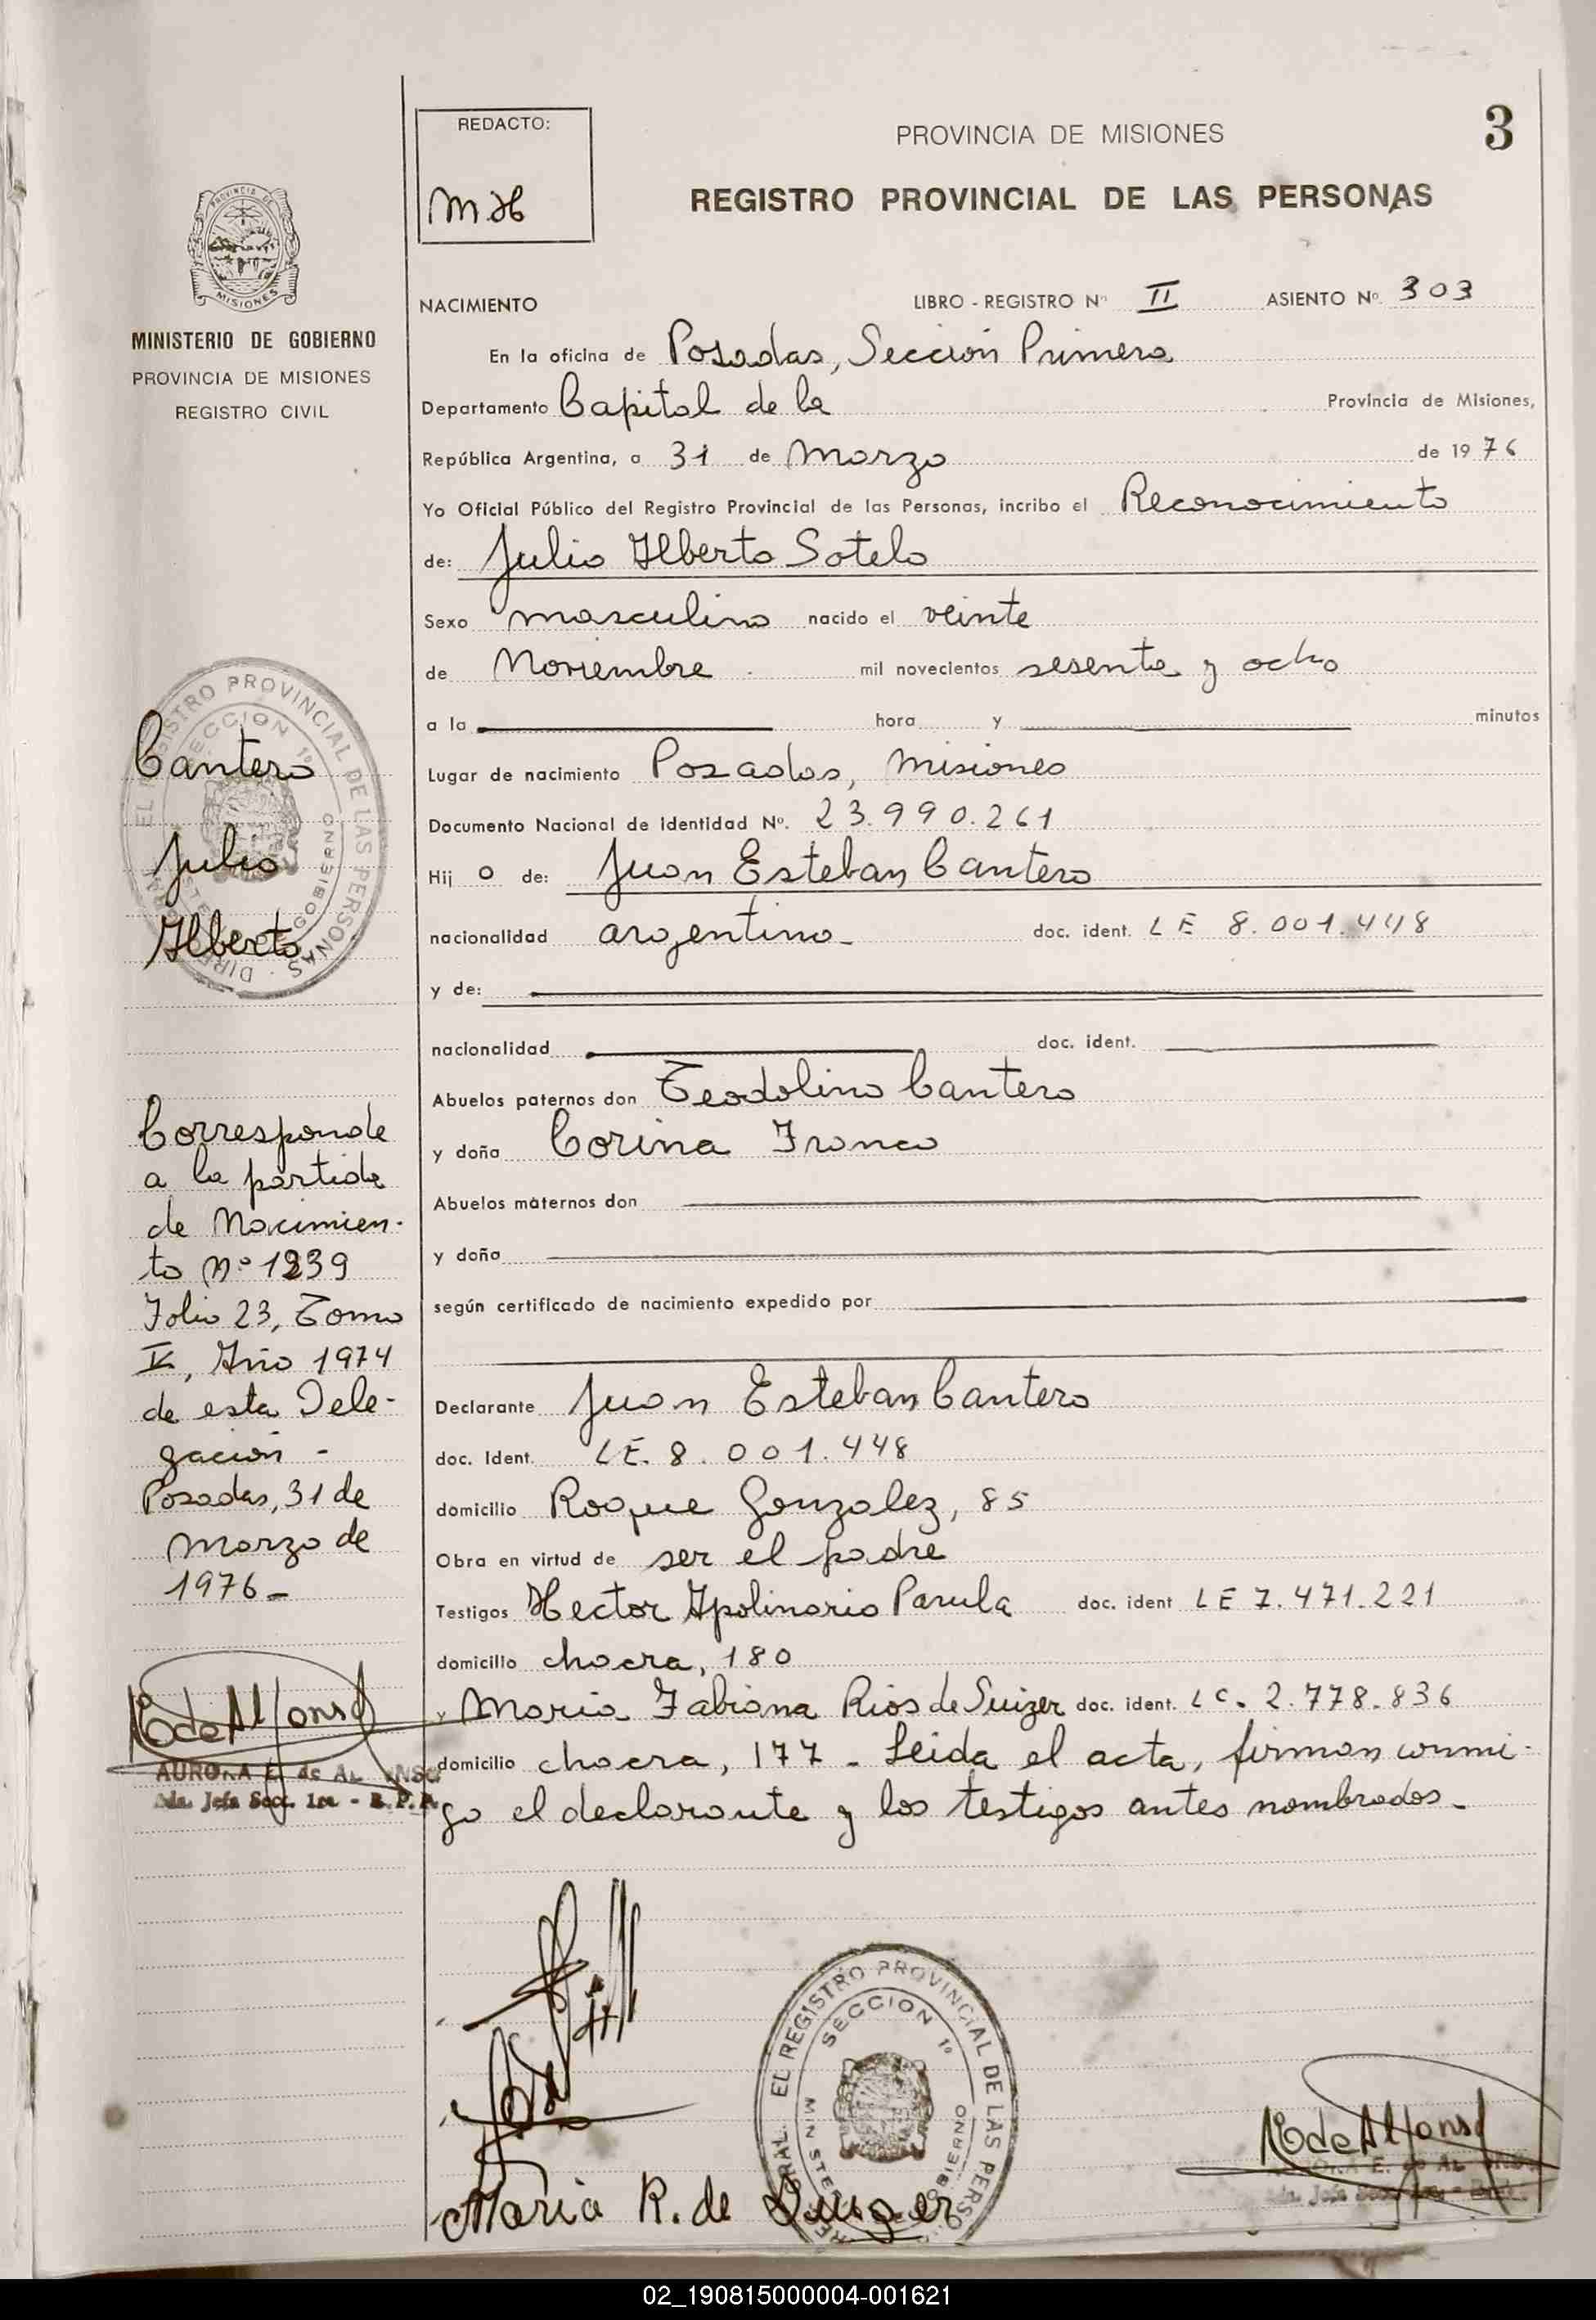 REDACTO:
MH
PROVINCIA DE MISIONES
3
REGISTRO PROVINCIAL DE LAS PERSONAS
NACIMIENTO LIBRO - REGISTRO Nº II ASIENTO Nº 303
En la oficina de Posadas, Sección Primera
Departamento Capital de la Provincia de Misiones,
República Argentina, a 31 de Marzo de 1976
Yo Oficial Público del Registro Provincial de las Personas, incribo el Reconocimiento
de: Julio Alberto Sotelo
Sexo masculino nacido el veinte
de Noviembre mil novecientos sesenta y ocho
a la hora y minutos
Lugar de nacimiento Posadas, Misiones
Documento Nacional de Identidad Nº. 23.990.261
Hij o de: Juan Esteban Cantero
nacionalidad argentino- doc. ident. LE 8.001.448
y de:
nacionalidad doc. ident.
Abuelos paternos don Teodolino Cantero
y doña Corina Franco
Abuelos maternos don
y doña
según certificado de nacimiento expedido por
Declarante Juan Esteban Cantero
doc. Ident. LE. 8.001.448
domicilio Roque Gonzalez, 85
Obra en virtud de ser el padre
Testigos Hector Apolinario Parula doc. ident LE 7.471.221
domicilio chacra, 180
y Maria Fabiana Rios de Suizer doc. ident. LC. 2.778.836
domicilio chacra, 177 - Leida el acta, firman conmi-
go el declarante y los testigos antes nombrados-
Maria R. de Suizer
EL REGISTRO PROVINCIAL DE LAS PERSONAS
SECCION 1º
MINISTERIO GOBIERNO
E. de Alfonso
PROVINCIA DE
MISIONES
MINISTERIO DE GOBIERNO
PROVINCIA DE MISIONES
REGISTRO CIVIL
EL REGISTRO PROVINCIAL DE LAS PERSONAS
SECCION 1º
GOBIERNO
Cantero
Julio
Alberto
Corresponde
a la partida
de Nacimien-
to Nº 1239
Folio 23, Tomo
IV, Año 1974
de esta Dele-
gación -
Posadas, 31 de
Marzo de
1976-
E. de Alfonso
AURORA E. de ALFONSO
Jefa Secc. 1ra - R.P.P.
02_190815000004-001621